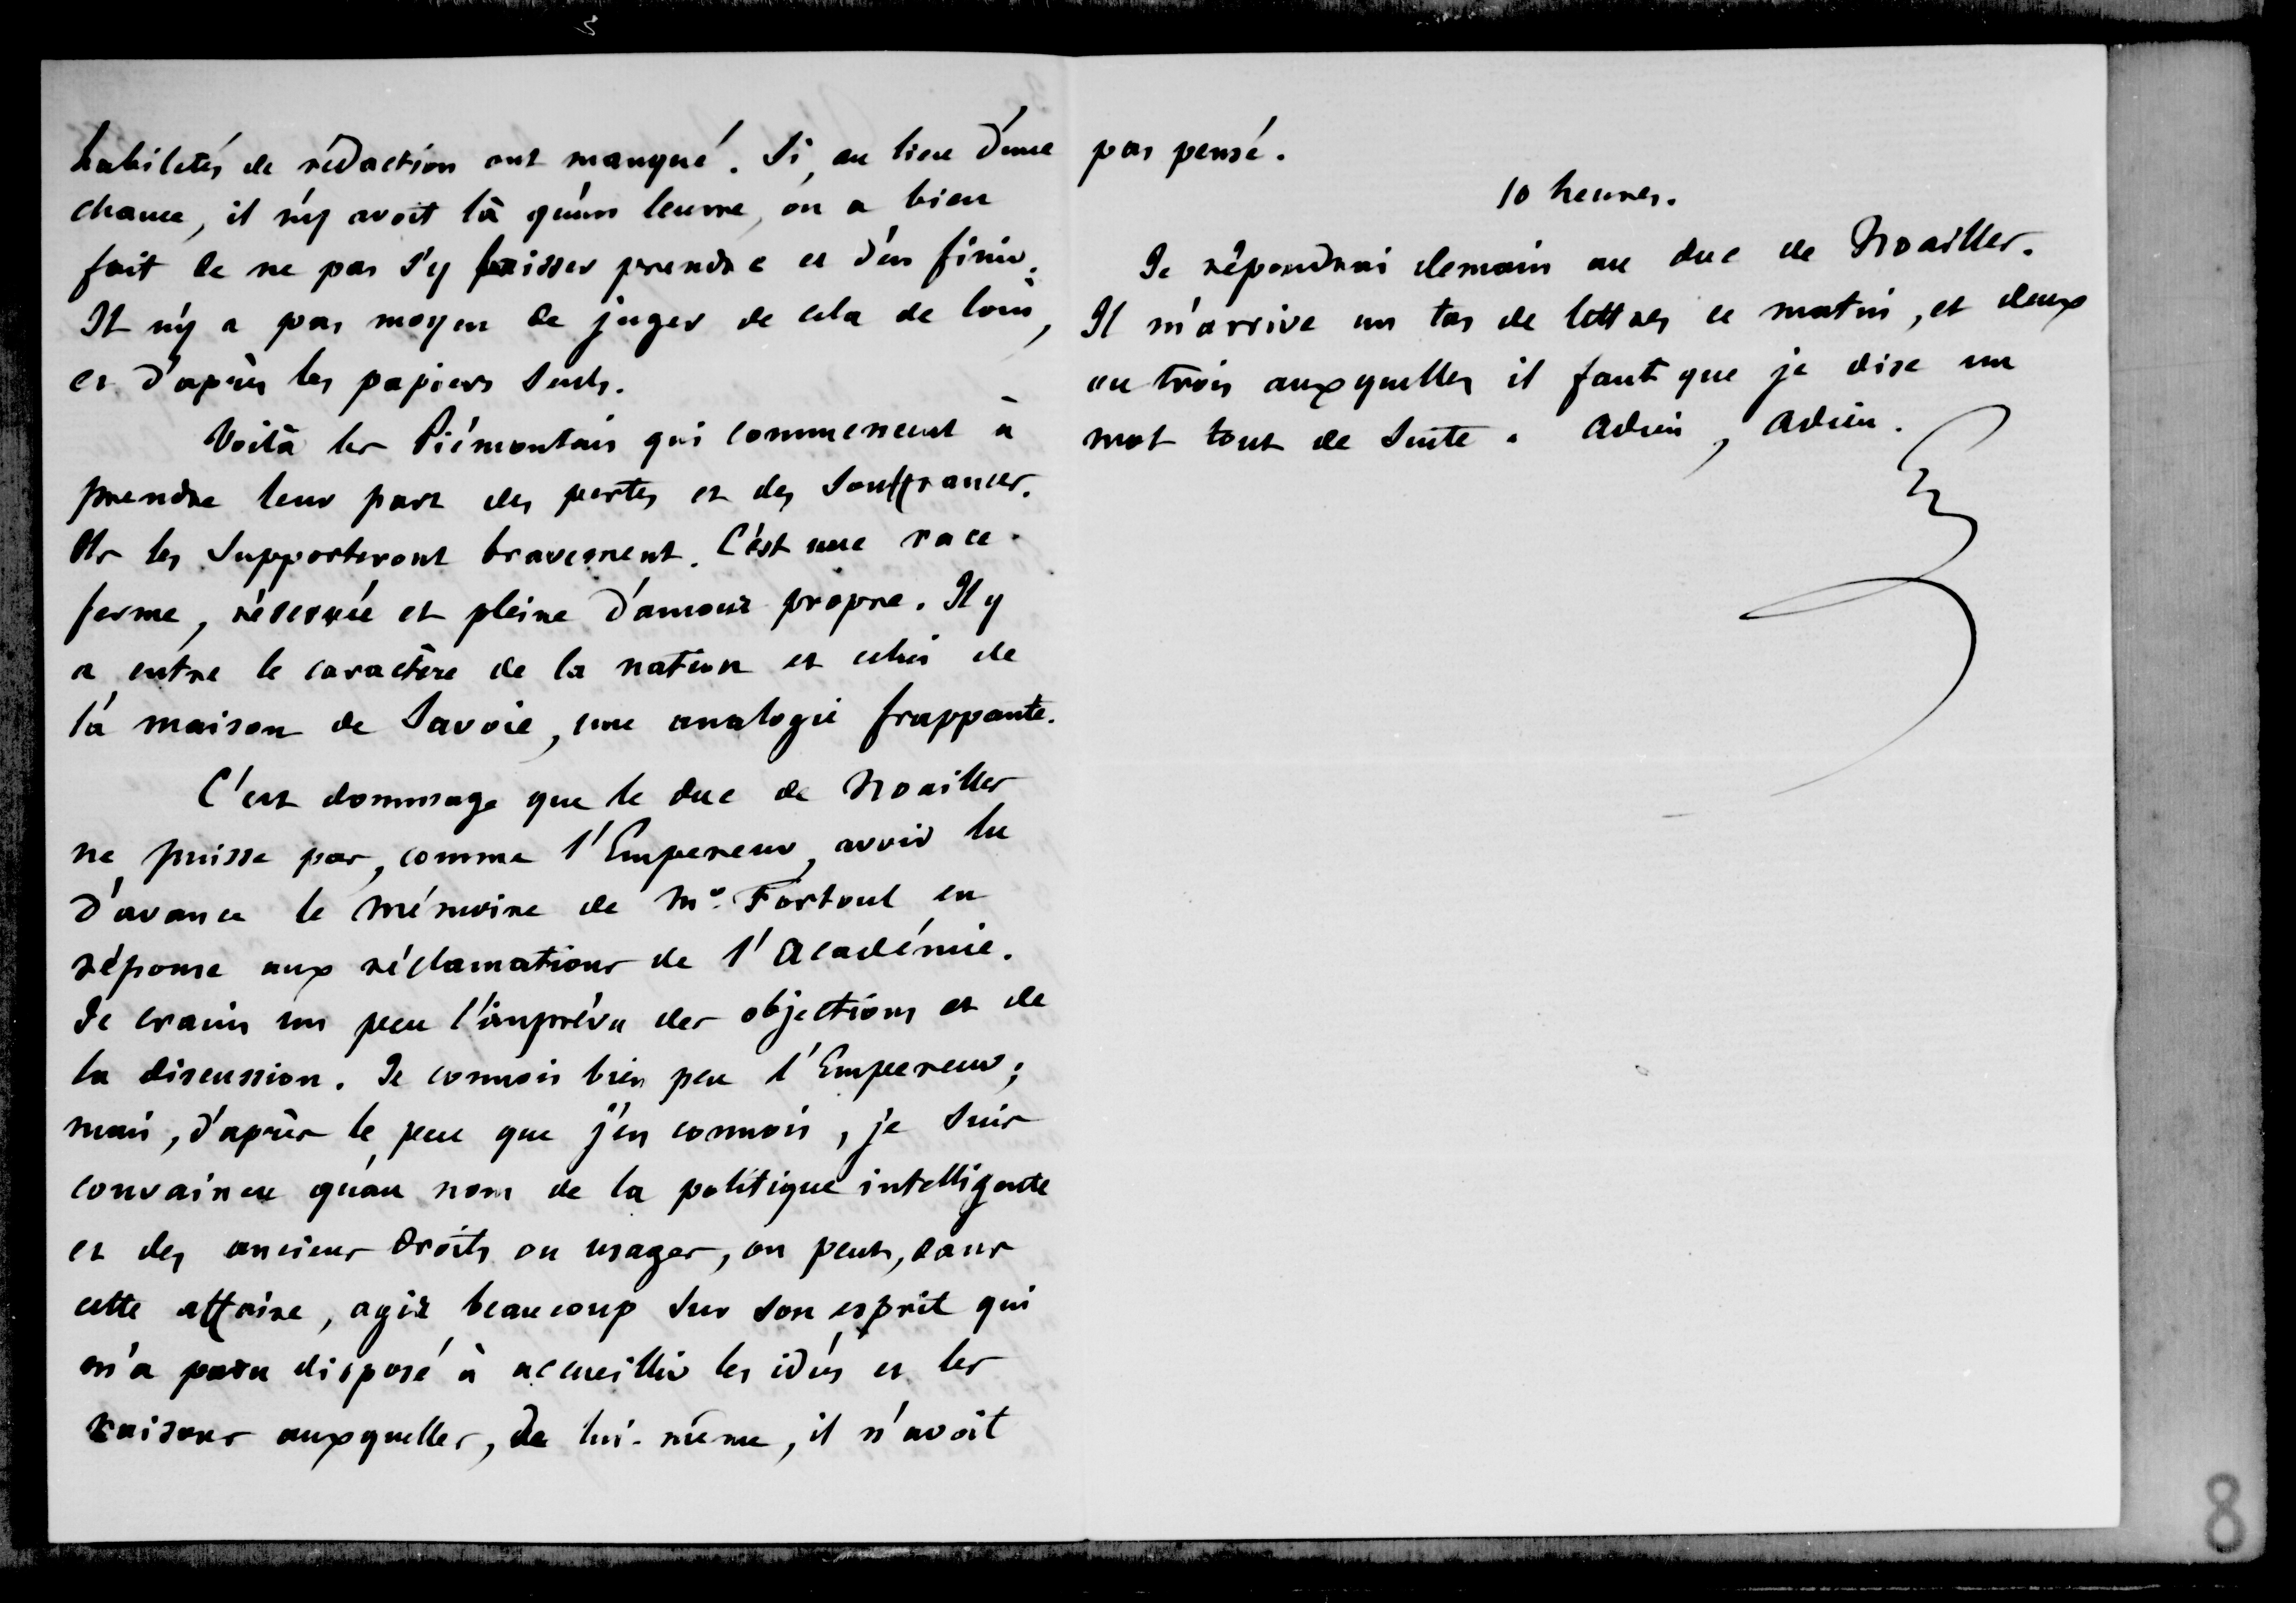 habiletés de rédaction ont manqué. Si, au lieu d'une
chance, il n'y avoit là qu'un leurre, on a bien
fait de ne pas s'y laisser prendre et d'en finir.
Il n'y a pas moyen de juger de cela de loin,
et d'après les papiers seuls.
Voilà les Piémontais qui commencent à
prendre leur part des pertes et des souffrances.
Ils les supporteront bravement. C'est une race
ferme, réservée et pleine d'amour propre. Il y
a entre le caractère de la nation et celui de
la maison de Savoie, une analogie frappante.
C'est dommage que le duc de Noailles
ne puisse pas, comme l'Empereur, avoir lu
d'avance le mémoire de Mr. Fortoul en
réponse aux réclamations de l'Académie.
Je crains un peu l'imprévu des objections et de
la discussion. Je connois bien peu l'Empereur;
mais, d'après le peu que j'en connois, je suis
convaincu qu'au nom de la politique intelligente
et des anciens droits ou usages, on peut, dans
cette affaire, agir beaucoup sur son esprit qui
m'a paru disposé à accueillir les idées et les
raisons auxquelles, de lui-même, il n'avoit
pas pensé.
10 heures.
Je répondrai demain au duc de Noailles.
Il m'arrive un tas de lettres ce matin, et deux
ou trois auxquelles il faut que je dise un
mot tout de suite. Adieu, Adieu.
8